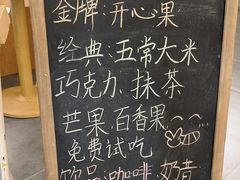 金牌:开心果
经典:五常大米
巧克力 抹茶
芒果 百香果
免费试吃
饮品:咖啡.奶昔